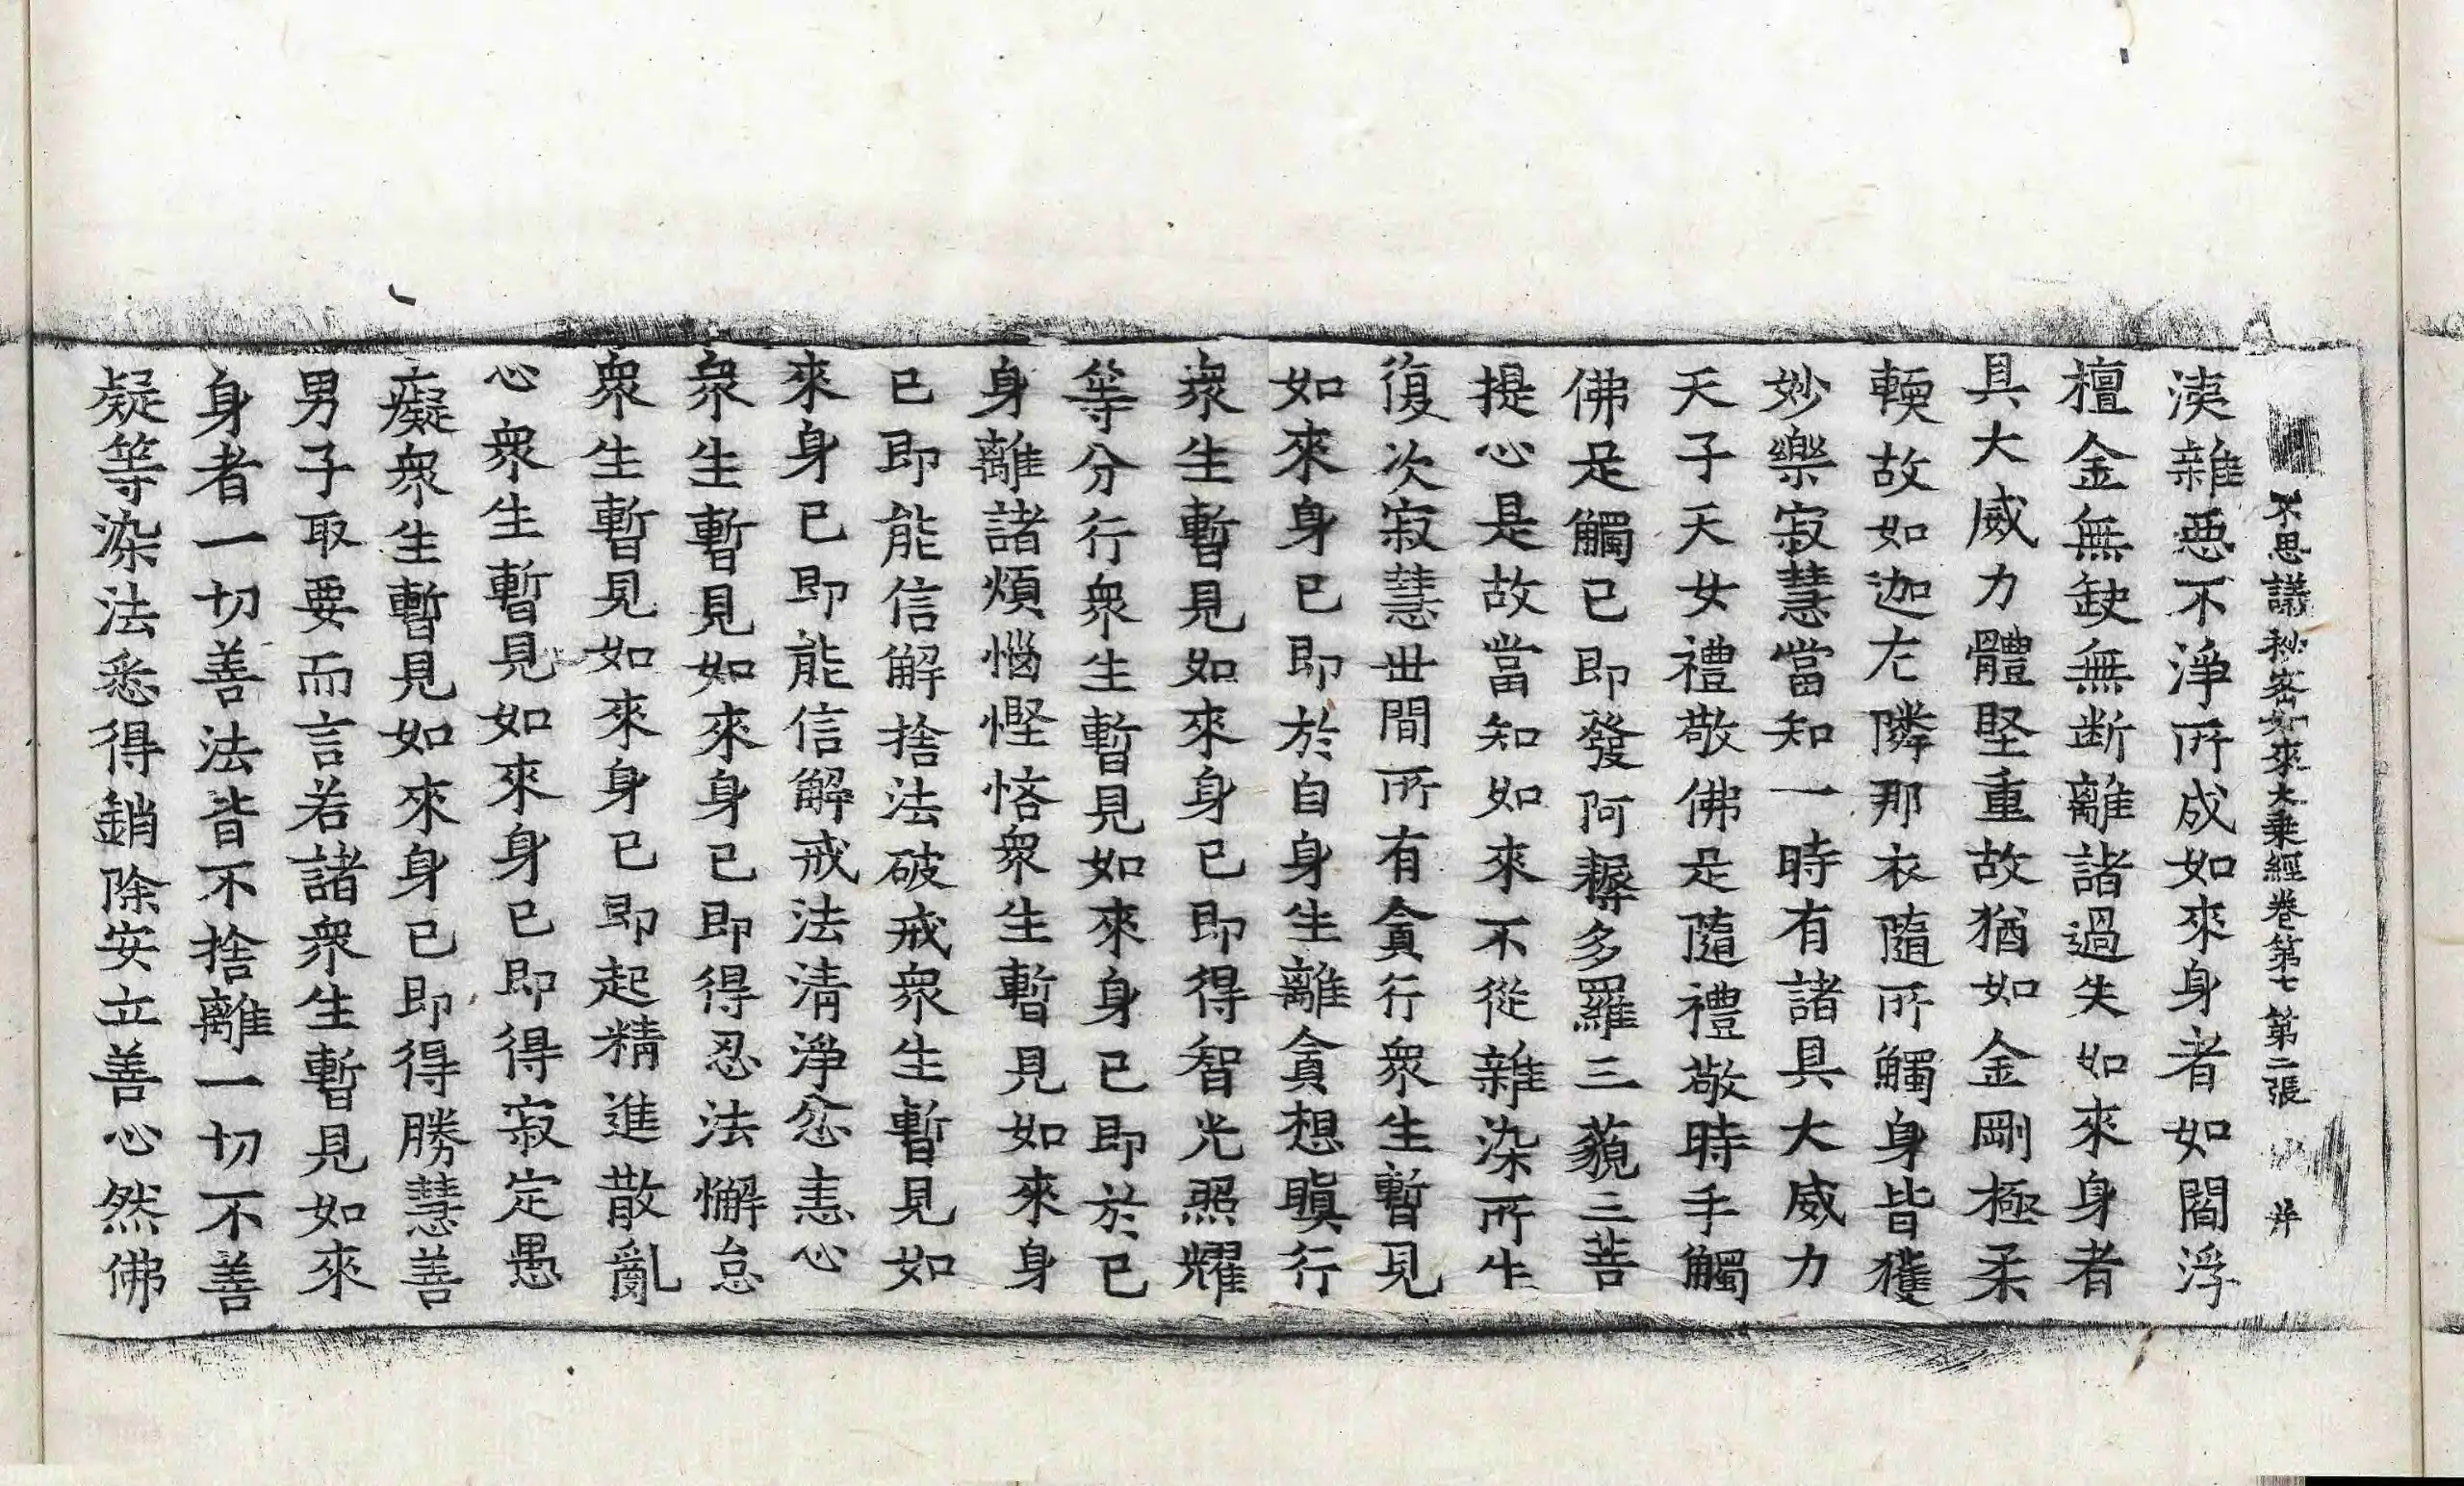 不思議秘密如來大乘經卷第七 第二張 并
洟雜惡不淨所成如來身者如閻浮
檀金無缺無断離諸過失如來身者
具大威力體堅重故猶如金剛極柔
輭故如迦左隣那衣隨所觸身皆獲
妙樂寂慧當知一時有諸具大威力
天子天女禮敬佛足隨禮敬時手觸
佛足觸已即發阿耨多羅三藐三菩
提心是故當知如來不從雜染所生
復次寂慧世間所有貪行衆生暫見
如來身已即於自身生離貪想瞋行
衆生暫見如來身已即得智光照耀
等分行衆生暫見如來身已即於已
身離諸煩惱慳悋衆生暫見如來身
已即能信解捨法破戒衆生暫見如
來身已即能信解戒法清淨忿恚心
衆生暫見如來身已即得忍法懈怠
衆生暫見如來身已即起精進散亂
心衆生暫見如來身已即得寂定愚
癡衆生暫見如來身已即得勝慧善
男子取要而言若諸衆生暫見如來
身者一切善法皆不捨離一切不善
疑等染法悉得銷除安立善心然佛